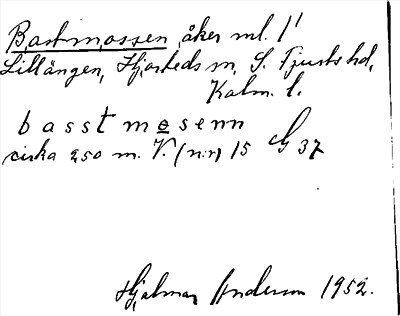 Bastmossen, åker ml. 1'
Lillängen, Hjorteds sn, S. Tjusts hd,
Kalm. l.
basstmosenn
cirka 250 m. V. (n:r) 15 G 37
Hjalmar Anderson 1952.